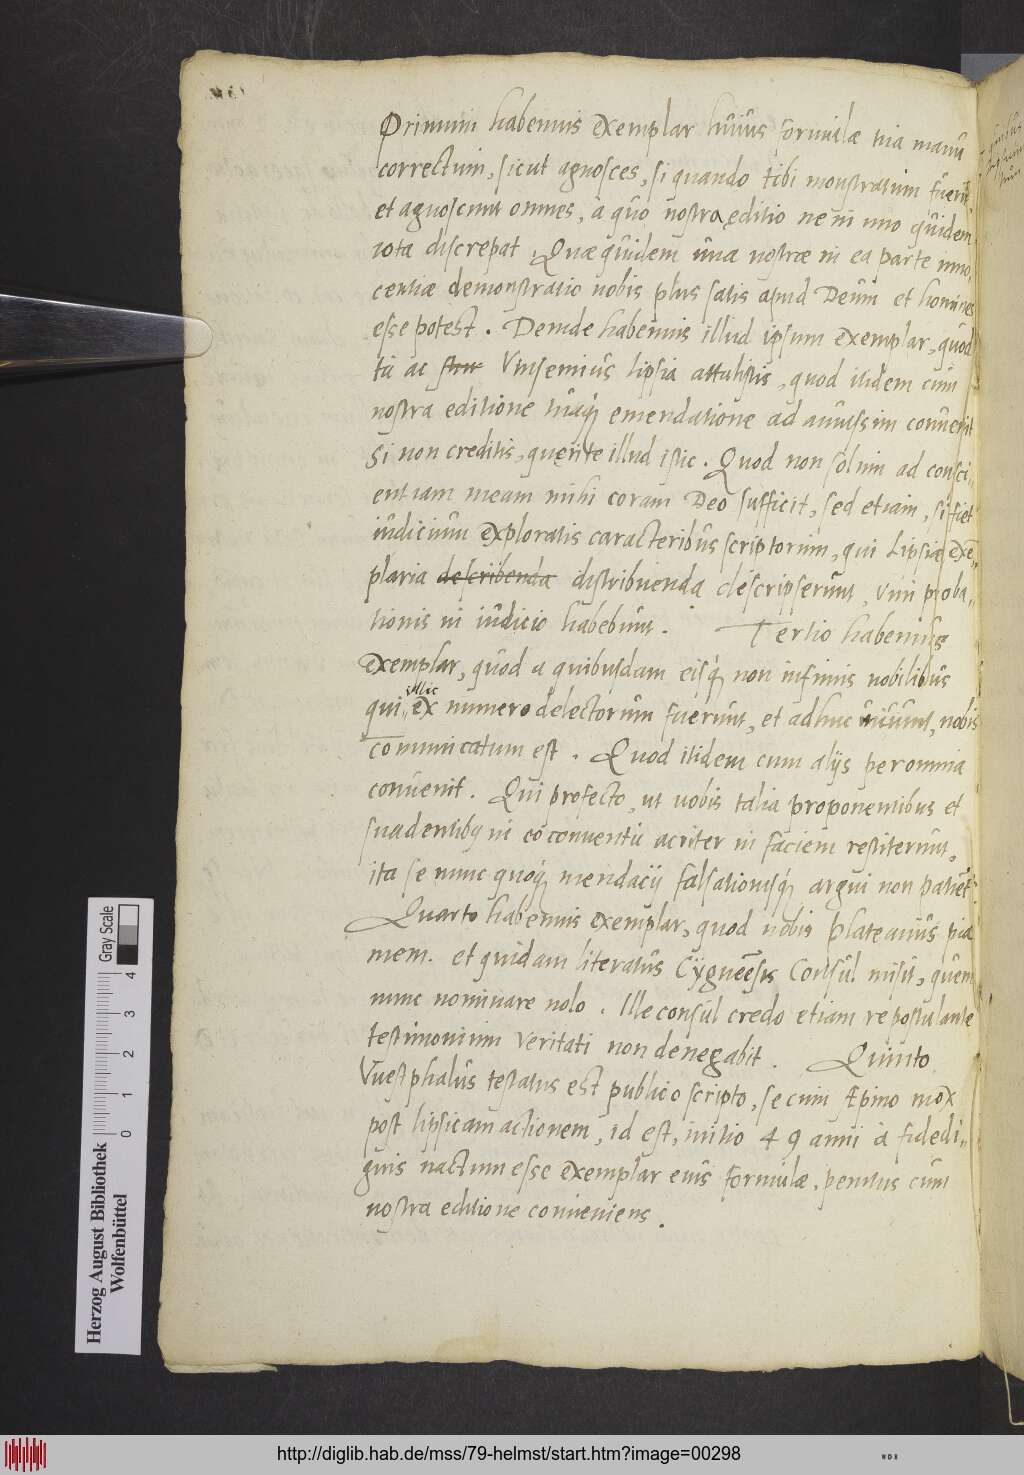 Primum habemus exemplar huius formulae tua manu
correctum, sicut agnosces, si quando tibi monstratum fuerit
et agnoscunt omnes, à quo nostra editio ne in uno quidem
iota discrepat. Quae quidem una nostrae in ea parte inno,,
centiae demonstratio nobis plus satis apud Deum et homines
esse potest. Deinde habemus illud ipsum exemplar, quod
tu ac Vuisemius lipsia attulistis, quod itidem cum
nostra editione tuaq́ emendatione ad amussim conuenit
Si non creditis, querite illud istic. Quod non solum ad consci,,
entiam meam mihi coram Deo sufficit, sed etiam, si fiet
iudicium exploratis caracteribus scriptorum, qui Lipsiae exē
plaria describenda distribuenda descripserunt, vim proba,,
tionis in iudicio habebunt. Tertio habemus
exemplar, quod a quibusdam eisq́ non infimis nobilibus
qui illic ex numero delectorum fuerunt, et adhuc uiuunt, nobis
communicatum est. Quod itidem cum alijs per omnia
conuenit. Qui profecto, ut uobis talia proponentibus et
suadentibq in eo conuentu acriter in faciem restiterunt,
ita se nunc quoq́ mendacij falsationisq́ argui non patiēt̃.
Quarto habemus exemplar, quod nobis plateanus pia
mem. et quidam literatus Cygneēsis Consul misit, quem
nunc nominare nolo. Ille consul credo etiam re postulante
testimonium veritati non denegabit. Quinto
Vuestphalus testatus est publico scripto, se cum Æpino mox
post lipsicam actionem, id est, initio 49 anni à fidedi,,
gnis nactum esse exemplar eius formulae, penitus cum
nostra editione conueniens.
Herzog August Bibliothek
Wolfenbüttel
0 1 2 3 4
Gray Scale
http://diglib.hab.de/mss/79-helmst/start.htm?image=00298
WDB